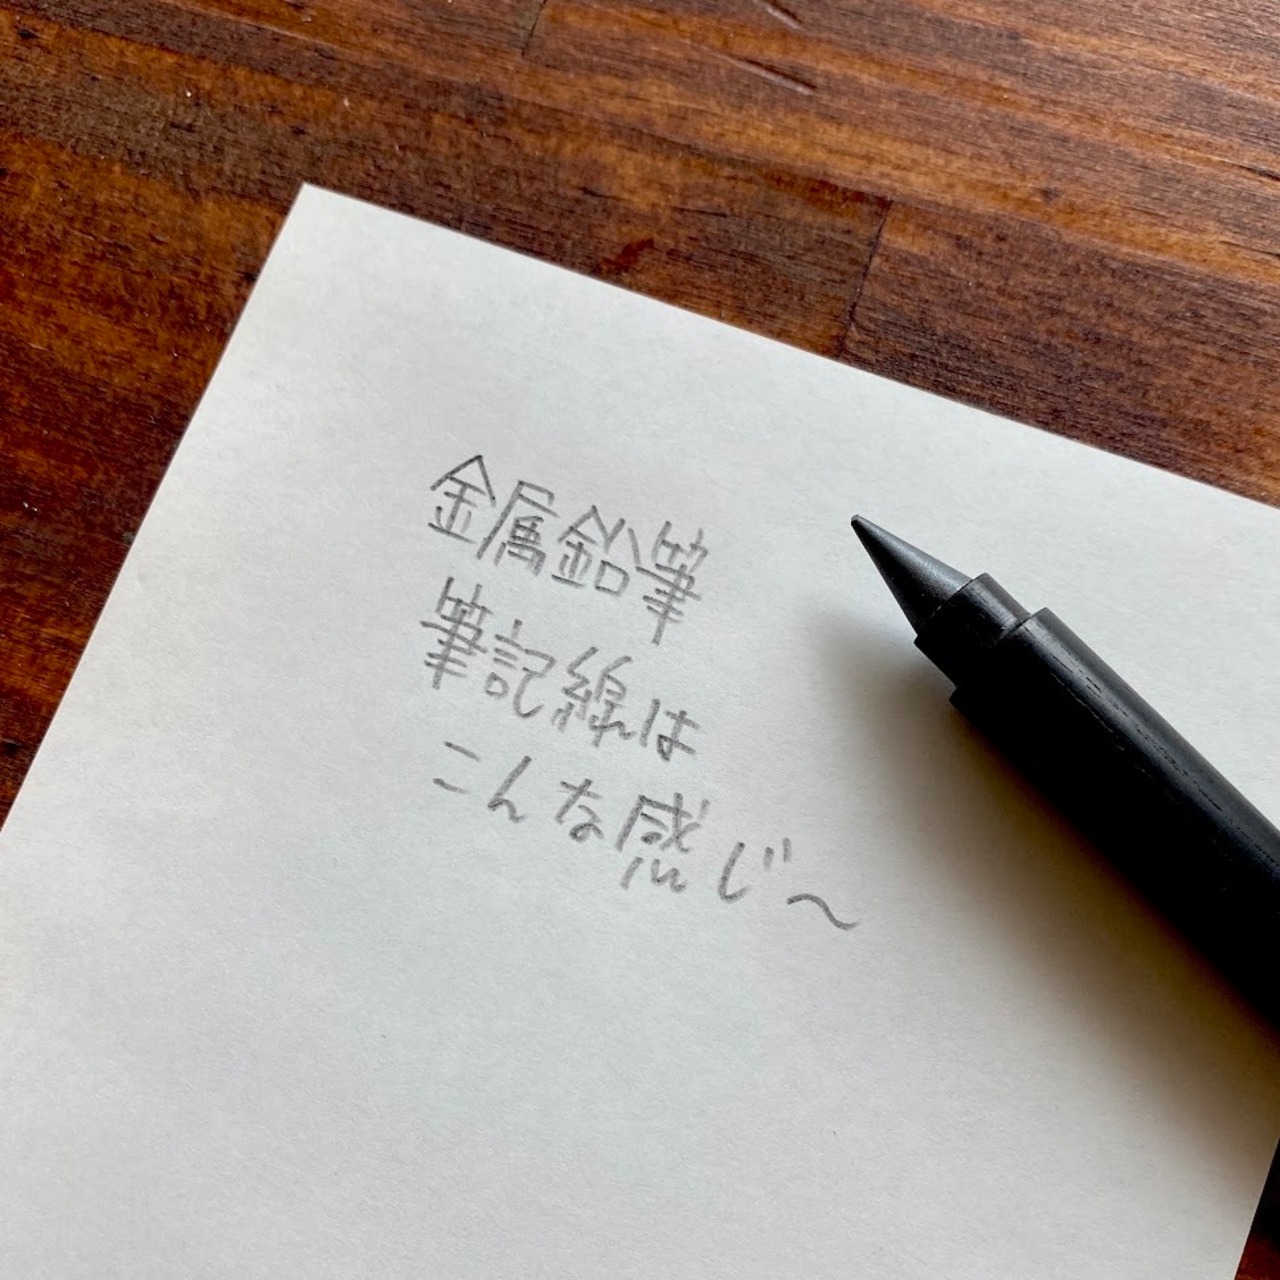 金属鉛筆
筆記線は
こんな感じ〜